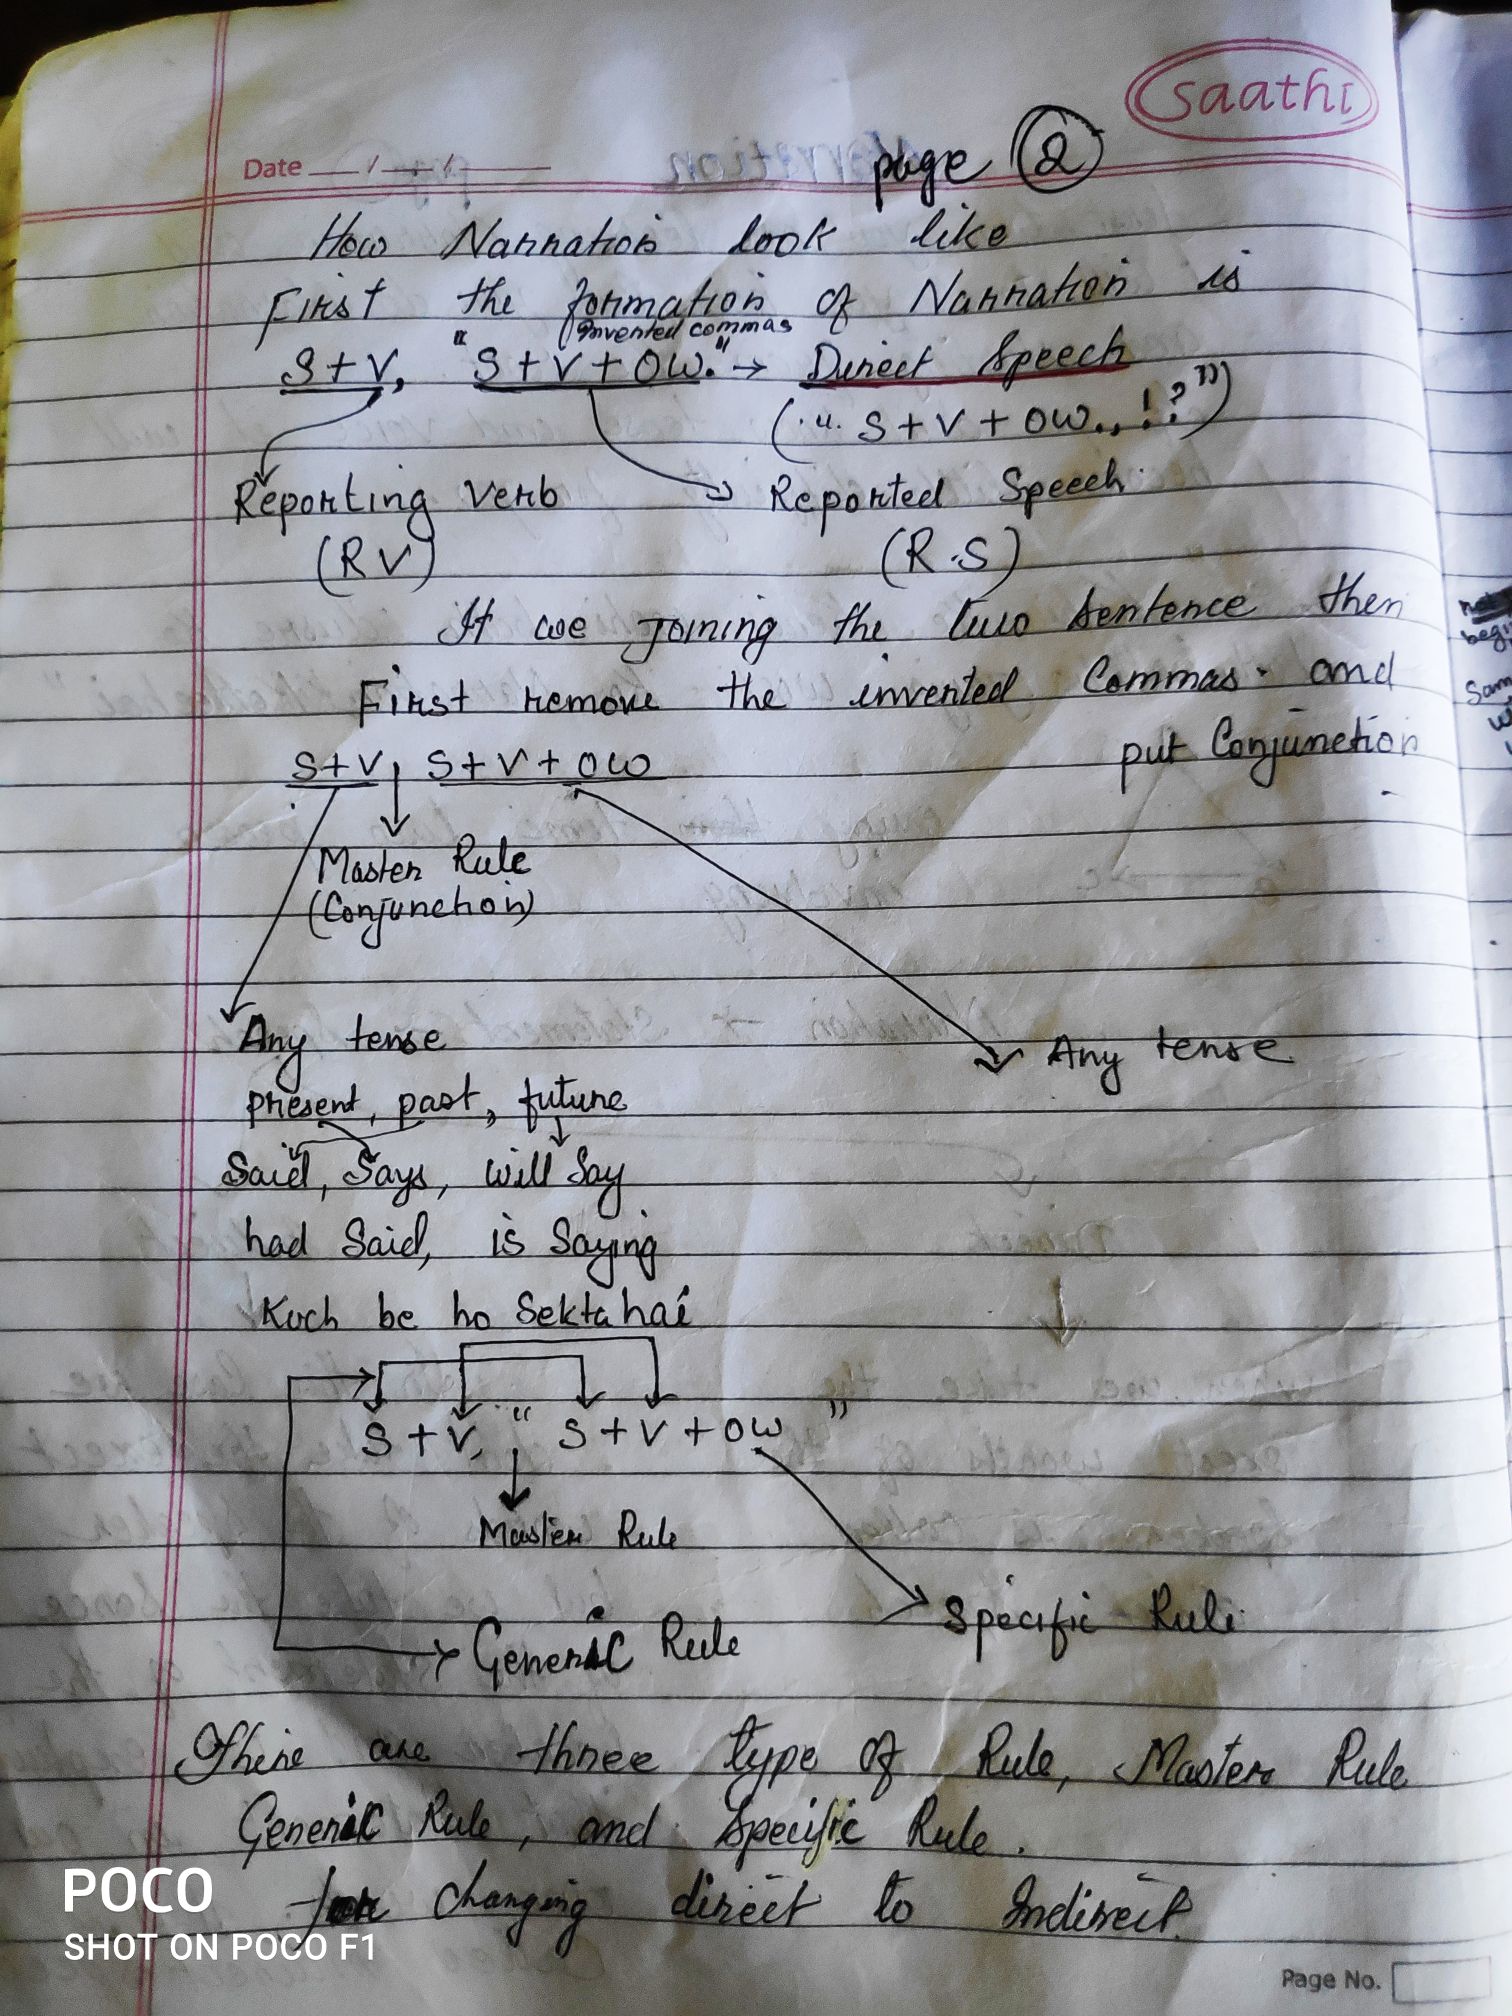 saathi
Date __/__/__
page 2
How Narration look like
First the formation of Narration is
Inverted commas
S+V, "S+V+OW." → Direct Speech
(".. S+V+OW.,!?")
Reporting Verb → Reported Speech
(RV) (R.S)
If we joining the two sentence then
First remove the inverted Commas. and
put Conjunction
S+V, S+V+OW
Master Rule
(Conjunction)
Any tense
Any tense
present, past, future
Said, Says, will Say
had Said, is Saying
Kuch be ho Sektahai
S+V, " S+V+OW "
Master Rule
Specific Rule
Generic Rule
There are three type of Rule, Master Rule
Generic Rule, and Specific Rule.
for changing direct to Indirect.
POCO
SHOT ON POCO F1
Page No.